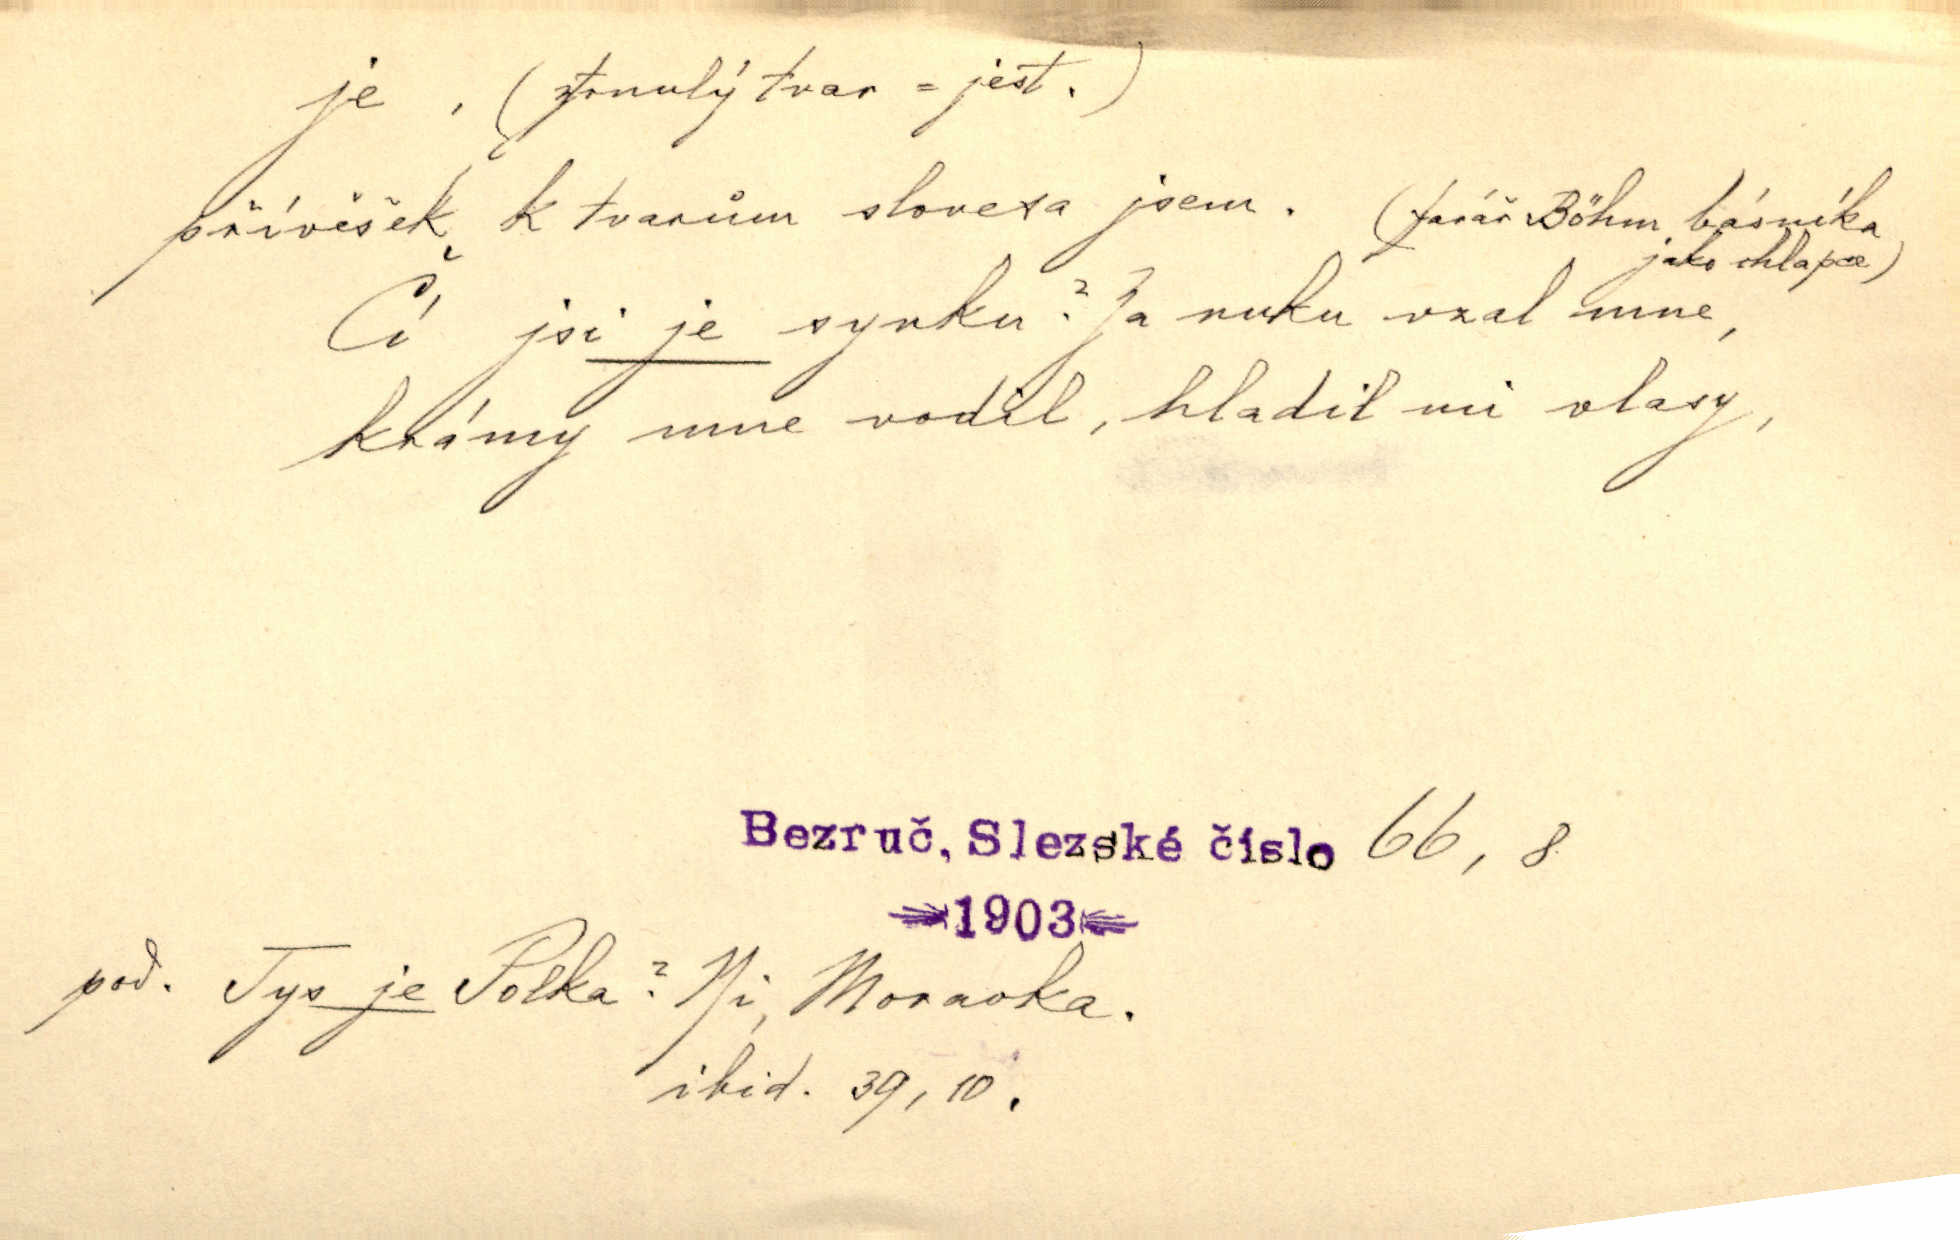 je , (ztrnulý tvar = jest.)
přívěšek k tvarům slovesa jsem. (farář Böhm básníka
jako chlapce)
Čí jsi je synku? Za ruku vzal mne,
krámy mne vodil, hladil mi vlasy,
Bezruč, Slezské číslo 66, 8
1903
pod. Tys je Polka? Ni, Moravka.
ibid. 39, 10.